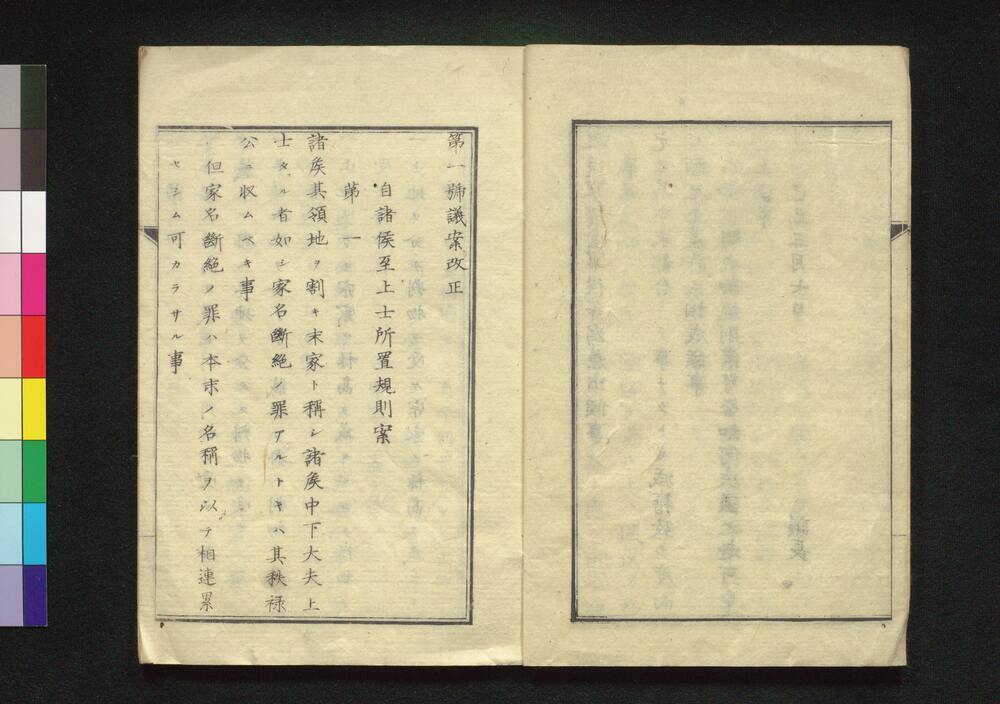 第一號議案改正
自諸侯至上士所置規則案
第一
諸侯其領地ヲ割キ末家ト稱シ諸侯中下大夫上
士タル者如シ家名斷絶ノ罪アルトキハ其秩禄
公ニ収ムベキ事
但家名斷絶ノ罪ハ本末ノ名稱ヲ以テ相連累
セシム可カラサル事